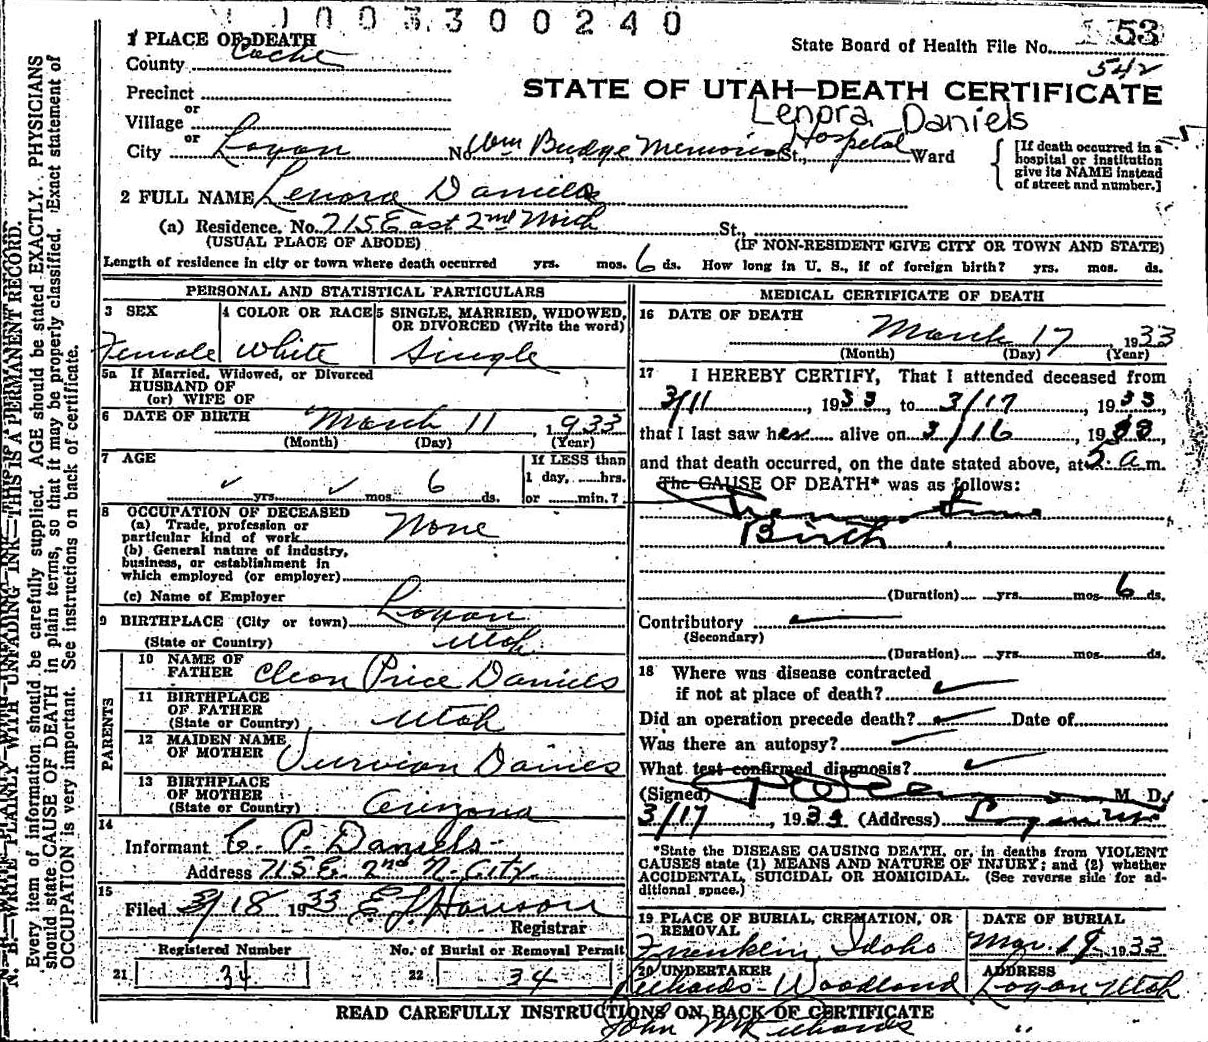 1003300240
1 PLACE OF DEATH
County Cache
State Board of Health File No. 53
542
Precinct
STATE OF UTAH—DEATH CERTIFICATE
Lenora Daniels
or
Village
or
City Logan No. Wm Budge Memorial Hospital St., Ward
[If death occurred in a hospital or institution give its NAME instead of street and number.]
2 FULL NAME Lenora Daniels
(a) Residence. No. 715 East 2nd North St.,
(USUAL PLACE OF ABODE) (IF NON-RESIDENT GIVE CITY OR TOWN AND STATE)
Length of residence in city or town where death occurred yrs. mos. 6 ds. How long in U. S., if of foreign birth? yrs. mos. ds.
PERSONAL AND STATISTICAL PARTICULARS
3 SEX 4 COLOR OR RACE 5 SINGLE, MARRIED, WIDOWED, OR DIVORCED (Write the word)
Female White Single
5a If Married, Widowed, or Divorced
HUSBAND OF
(or) WIFE OF
6 DATE OF BIRTH March 11 1933
(Month) (Day) (Year)
7 AGE If LESS than
1 day, hrs.
yrs. mos. 6 ds. or min.?
8 OCCUPATION OF DECEASED
(a) Trade, profession or
particular kind of work None
(b) General nature of industry,
business, or establishment in
which employed (or employer)
(c) Name of Employer
9 BIRTHPLACE (City or town) Logan
(State or Country) Utah
PARENTS
10 NAME OF FATHER Cleon Price Daniels
11 BIRTHPLACE OF FATHER (State or Country) Utah
12 MAIDEN NAME OF MOTHER Daines
13 BIRTHPLACE OF MOTHER (State or Country) Arizona
14 Informant C. P. Daniels
Address 715 E. 2nd N. City
15 Filed 3/18 1933 E J Hanson
Registrar
Registered Number No. of Burial or Removal Permit
21 34 22 34
MEDICAL CERTIFICATE OF DEATH
16 DATE OF DEATH
March 17 1933
(Month) (Day) (Year)
17 I HEREBY CERTIFY, That I attended deceased from
3/11, 1933, to 3/17, 1933,
that I last saw her alive on 3/16, 1933,
and that death occurred, on the date stated above, at 2 a m.
The CAUSE OF DEATH* was as follows:
Premature
Birth
(Duration) yrs. mos. 6 ds.
Contributory
(Secondary)
(Duration) yrs. mos. ds.
18 Where was disease contracted
if not at place of death?
Did an operation precede death? Date of
Was there an autopsy?
What test confirmed diagnosis?
(Signed) M. D.
3/17, 1933 (Address) Logan Utah
*State the DISEASE CAUSING DEATH, or, in deaths from VIOLENT
CAUSES state (1) MEANS AND NATURE OF INJURY; and (2) whether
ACCIDENTAL, SUICIDAL OR HOMICIDAL. (See reverse side for ad-
ditional space.)
19 PLACE OF BURIAL, CREMATION, OR REMOVAL DATE OF BURIAL
Franklin, Idaho Mar. 19 1933
20 UNDERTAKER ADDRESS
Richards-Woodland Logan, Utah
READ CAREFULLY INSTRUCTIONS ON BACK OF CERTIFICATE
John M Richards
N. B.—WRITE PLAINLY WITH UNFADING INK—THIS IS A PERMANENT RECORD.
Every item of information should be carefully supplied. AGE should be stated EXACTLY. PHYSICIANS
should state CAUSE OF DEATH in plain terms, so that it may be properly classified. Exact statement of
OCCUPATION is very important. See instructions on back of certificate.